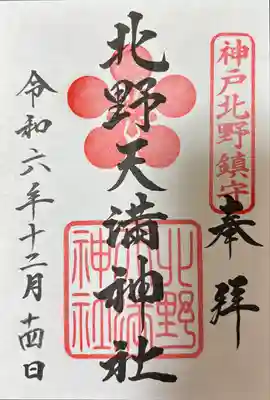 神戸北野鎮守
奉拝
北野天満神社
令和六年十二月十四日